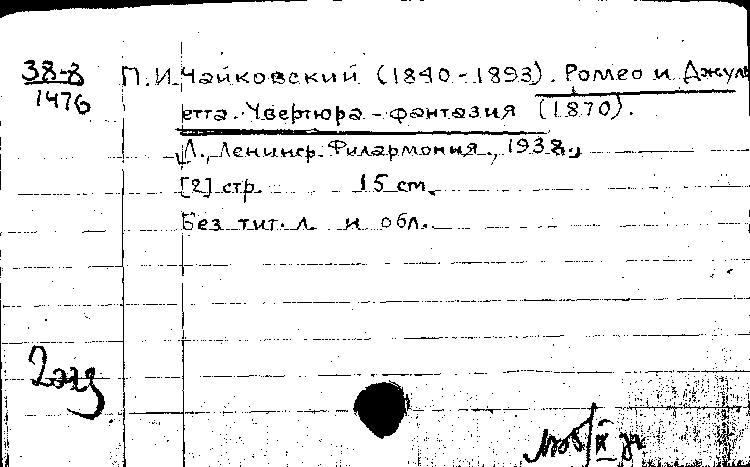 38-8
1476
П.И.Чайковский (1840-1893). Ромео и Джуль
етта. Увертюра-фантазия (1870).
Л., Ленингр. Филармония, 1938.,
[2] стр. 15 cm.
Без тит. л. и обл.
2 экз